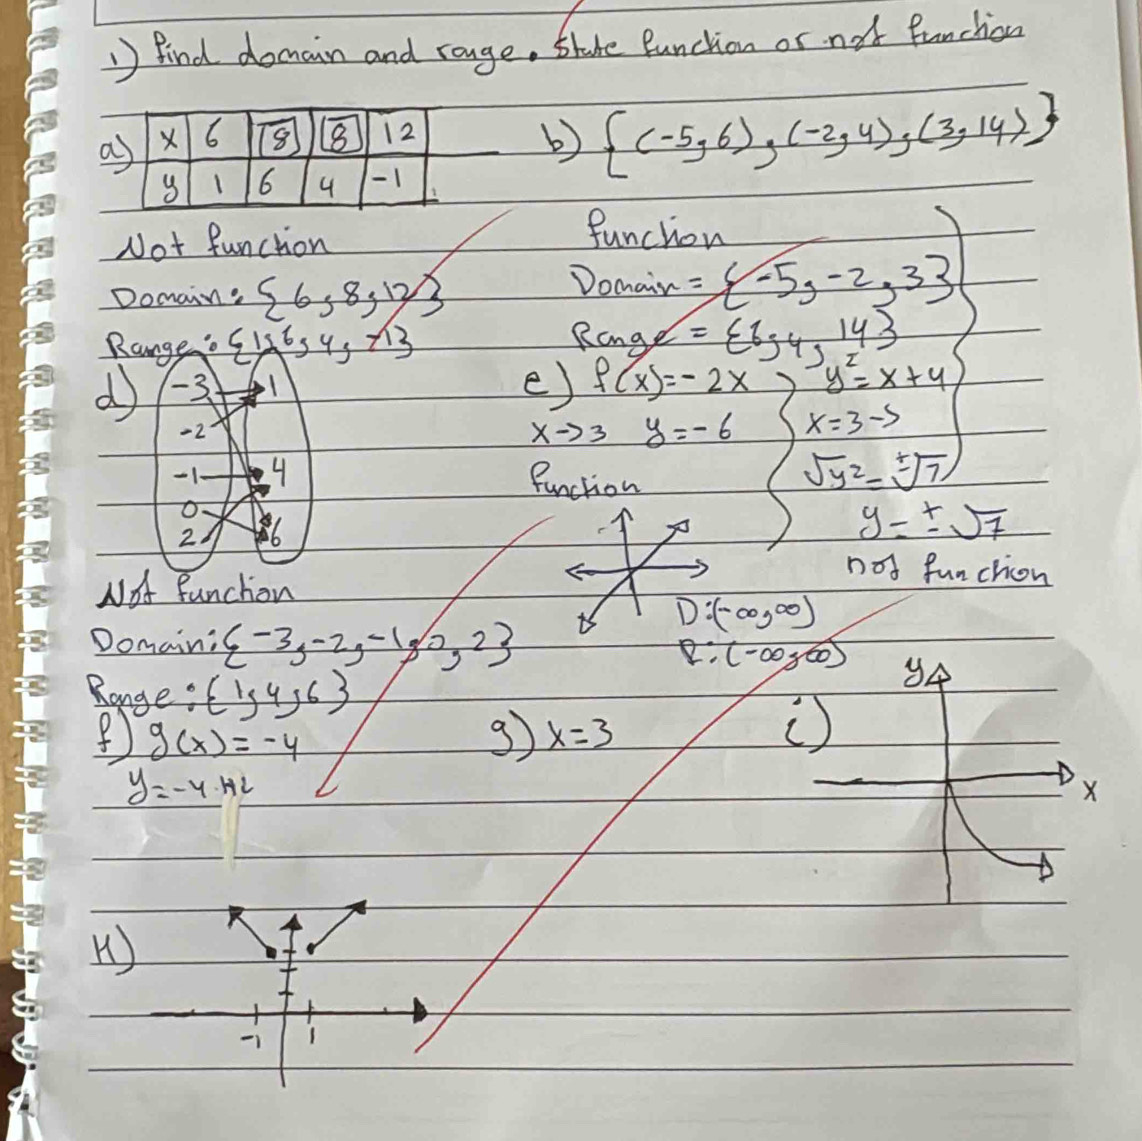 1) find domain and range. State function or not function
a) x 6 8 8 12
y 1 6 4 -1
b) {(-5,6), (-2,4), (3,14)}
Not function
Domain: {6,8,12}
Range: {1,6,4,-1}
function
Domain = {-5,-2,3}
Range = {6,4,14}
d) -3 1
-2
-1 4
0
2 6
Not function
Domain: {-3,-2,-1,0,2}
Range: {1,4,6}
e) f(x)=-2x
x->3 y=-6
function
D:(-∞,∞)
R:(-∞,∞)
y²=x+4
x=3->
√y2=±√7
y=±√7
not function
f) g(x)=-4
y=-4
g) x=3
i)
y
x
H)
-1 1